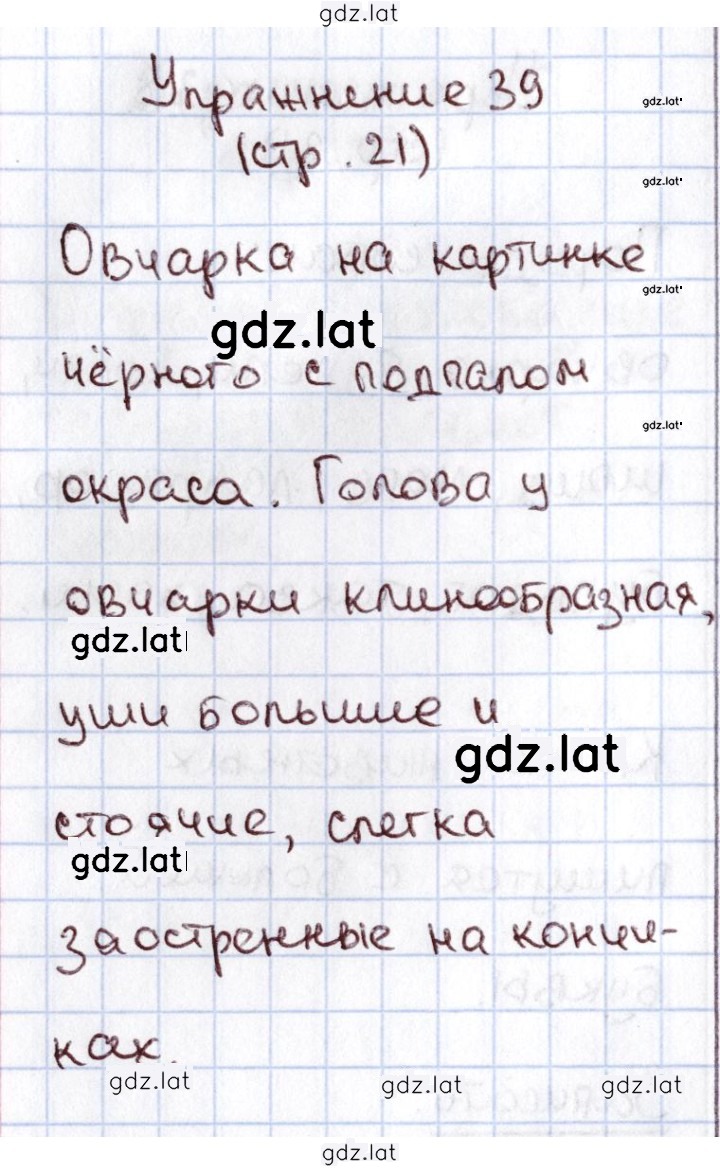 gdz.lat
Упражнение 39
gdz.lat
(стр. 21)
gdz.lat
Овчарка на картинке
gdz.lat
gdz.lat
чёрного с подпалом
gdz.lat
окраса. Голова у
овчарки клинообразная,
gdz.lat
уши большие и
gdz.lat
стоячие, слегка
gdz.lat
заостренные на кончи-
ках.
gdz.lat gdz.lat gdz.lat
gdz.lat